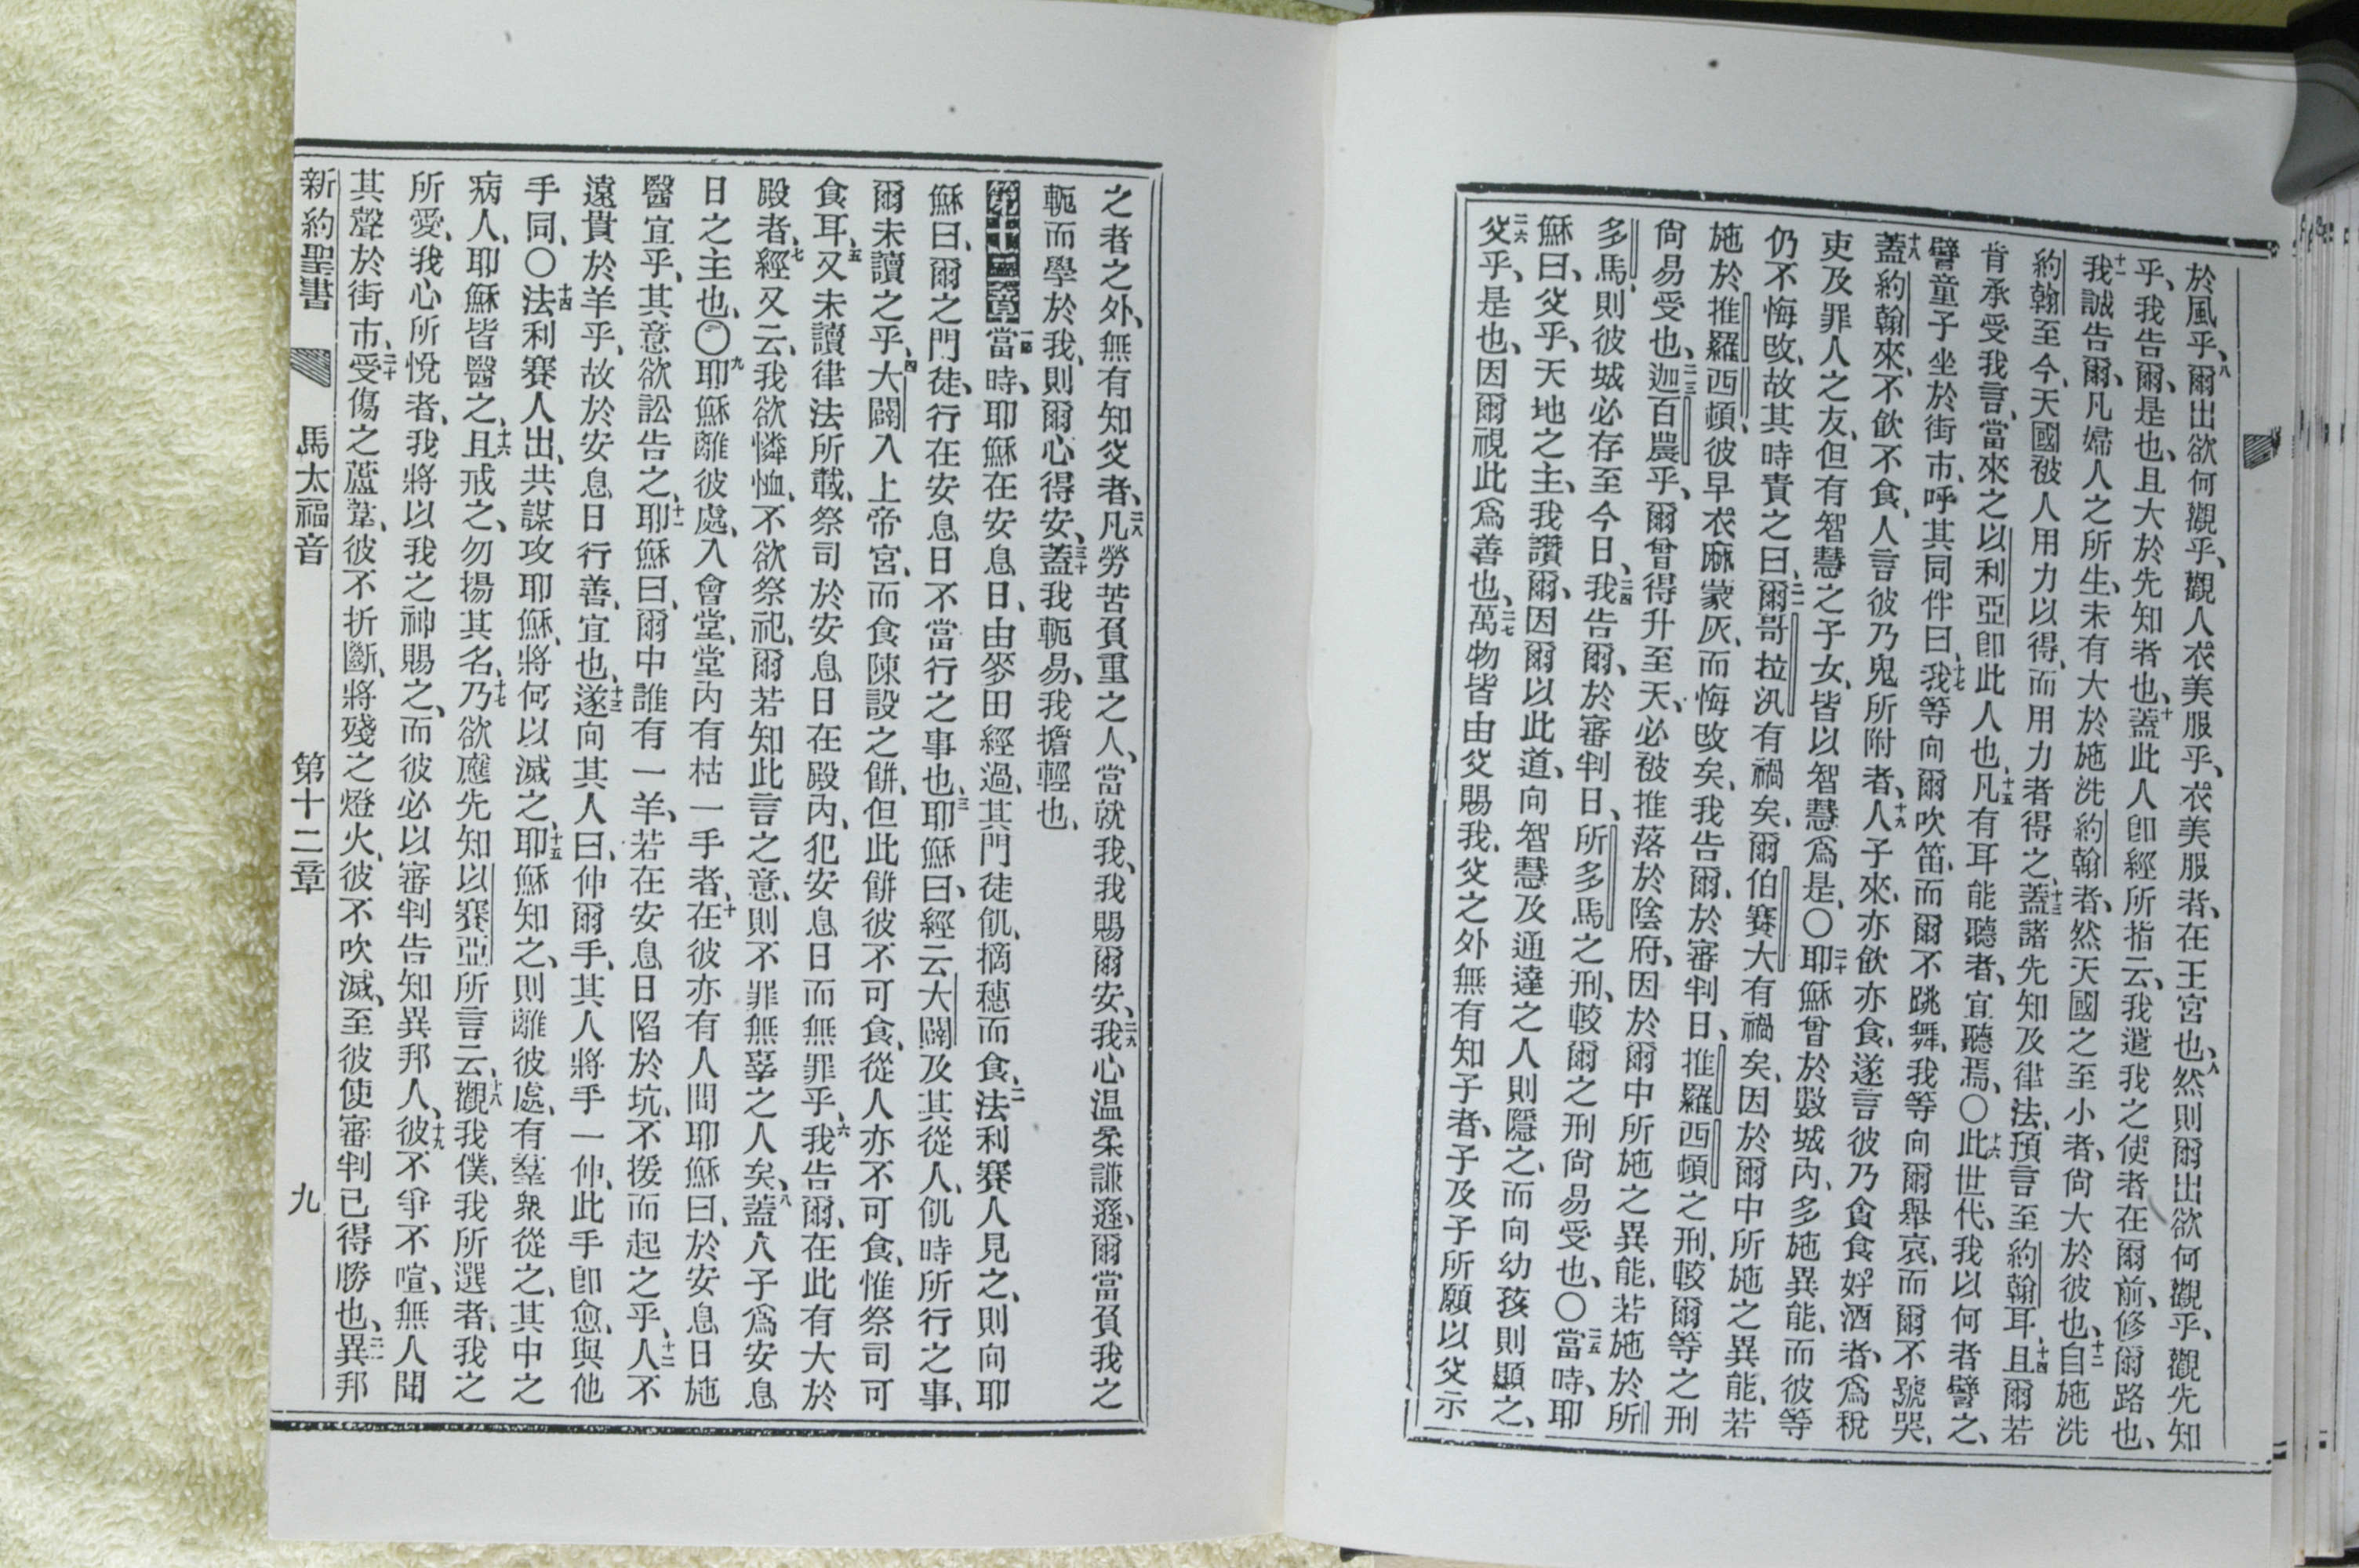 於風乎、八爾出欲何觀乎、觀人衣美服乎、衣美服者、在王宮也、九然則爾出欲何觀乎、觀先知
乎、我告爾、是也、且大於先知者也、十蓋此人卽經所指云、我遣我之使者在爾前、修爾路也、
十一我誠告爾、凡婦人之所生、未有大於施洗約翰者、然天國之至小者、尙大於彼也、十二自施洗
約翰至今、天國被人用力以得、而用力者得之、十三蓋諸先知及律法、預言至約翰耳、十四且爾若
肯承受我言、當來之以利亞卽此人也、十五凡有耳能聽者、宜聽焉、〇十六此世代、我以何者譬之、
譬童子坐於街市、呼其同伴曰、十七我等向爾吹笛、而爾不跳舞、我等向爾舉哀、而爾不號哭、
十八蓋約翰來、不飲不食、人言彼乃鬼所附者、十九人子來、亦飲亦食、遂言彼乃貪食好酒者、爲稅
吏及罪人之友、但有智慧之子女、皆以智慧爲是、〇二十耶穌曾於數城內、多施異能、而彼等
仍不悔改、故其時責之曰、二一爾哥拉汛有禍矣、爾伯賽大有禍矣、因於爾中所施之異能、若
施於推羅西頓、彼早衣麻蒙灰、而悔改矣、我告爾、於審判日、推羅西頓之刑、較爾等之刑
尙易受也、二三迦百農乎、爾曾得升至天、必被推落於陰府、因於爾中所施之異能、若施於所
多馬、則彼城必存至今日、二四我告爾、於審判日、所多馬之刑、較爾之刑尙易受也、〇二五當時、耶
穌曰、父乎、天地之主、我讚爾、因爾以此道、向智慧及通達之人則隱之、而向幼孩則顯之、
二六父乎、是也、因爾視此爲善也、二七萬物皆由父賜我、父之外無有知子者、子及子所願以父示
之者之外、無有知父者、二八凡勞苦負重之人、當就我、我賜爾安、二九我心温柔謙遜、爾當負我之
軛而學於我、則爾心得安、三十蓋我軛易、我擔輕也、
第十二章一節當時、耶穌在安息日、由麥田經過、其門徒飢、摘穗而食、二法利賽人見之、則向耶
穌曰、爾之門徒、行在安息日不當行之事也、三耶穌曰、經云大闢及其從人、飢時所行之事、
爾未讀之乎、四大闢入上帝宮、而食陳設之餅、但此餅彼不可食、從人亦不可食、惟祭司可
食耳、五又未讀律法所載、祭司於安息日在殿內、犯安息日而無罪乎、六我告爾、在此有大於
殿者、七經又云、我欲憐恤、不欲祭祀、爾若知此言之意、則不罪無辜之人矣、八蓋人子爲安息
日之主也、〇九耶穌離彼處、入會堂、堂內有枯一手者、十在彼亦有人問耶穌曰、於安息日施
醫宜乎、其意欲訟告之、十一耶穌曰、爾中誰有一羊、若在安息日陷於坑、不援而起之乎、十二人不
遠貴於羊乎、故於安息日行善、宜也、十三遂向其人曰、伸爾手、其人將手一伸、此手卽愈、與他
手同、〇十四法利賽人出、共謀攻耶穌、將何以滅之、十五耶穌知之、則離彼處、有羣衆從之、其中之
病人、耶穌皆醫之、十六且戒之、勿揚其名、十七乃欲應先知以賽亞所言云、十八觀我僕、我所選者、我之
所愛、我心所悅者、我將以我之神賜之、而彼必以審判告知異邦人、十九彼不爭不喧、無人聞
其聲於街市、二十受傷之蘆葦、彼不折斷、將殘之燈火、彼不吹滅、至彼使審判已得勝也、二一異邦
新約聖書 馬太福音 第十二章 九